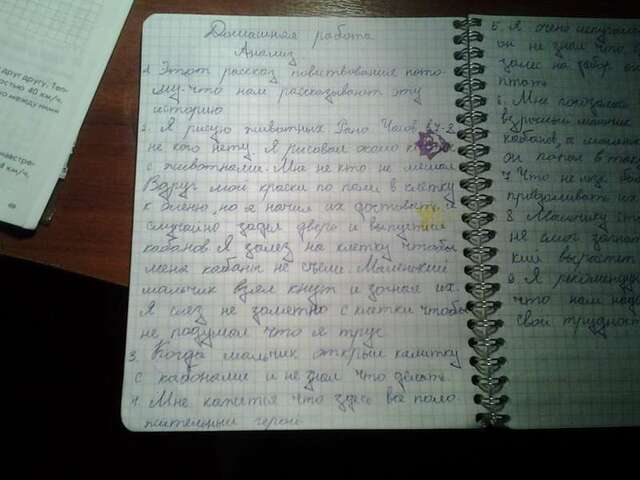 друг другу. Теп-
остью 40 км/ч.
о между ними
навстре-
км/ч.
Домашняя работа
Анализ
1. Этот рассказ повествование пото-
му-что нам рассказывают эту
историю.
2. Я рисую животных Рано Часов в 7-8
не кого нету. Я рисовал около
с животнами. Мне не кто не мешал
Вдруг мои краски по пали в клетку
к оленю, но я начил их доставать и
случайно задел дверь и выпустил
кабанов Я залез на клетку чтобы
меня кабаны не съели. Маленький
мальчик взял кнут и загнал их.
Я слез не заметно с клетки чтобы
не подумал что я трус
3. Когда мальчик открыл калитку
с кабонами и не знал что делать
4. Мне кажется что здесь все поло
жительный герои
5. Я очень испугался
он не знал что
залез на забор он
птать
6. Мне показалось
взрослый мальчик
кабанов, а маленьк
он попал в так
7. Что не льзя бы
придоливать их
8. Мальчику ст
не смог загнат
кий вырастет
9. Я рекоменду
что нам над
свой трудност